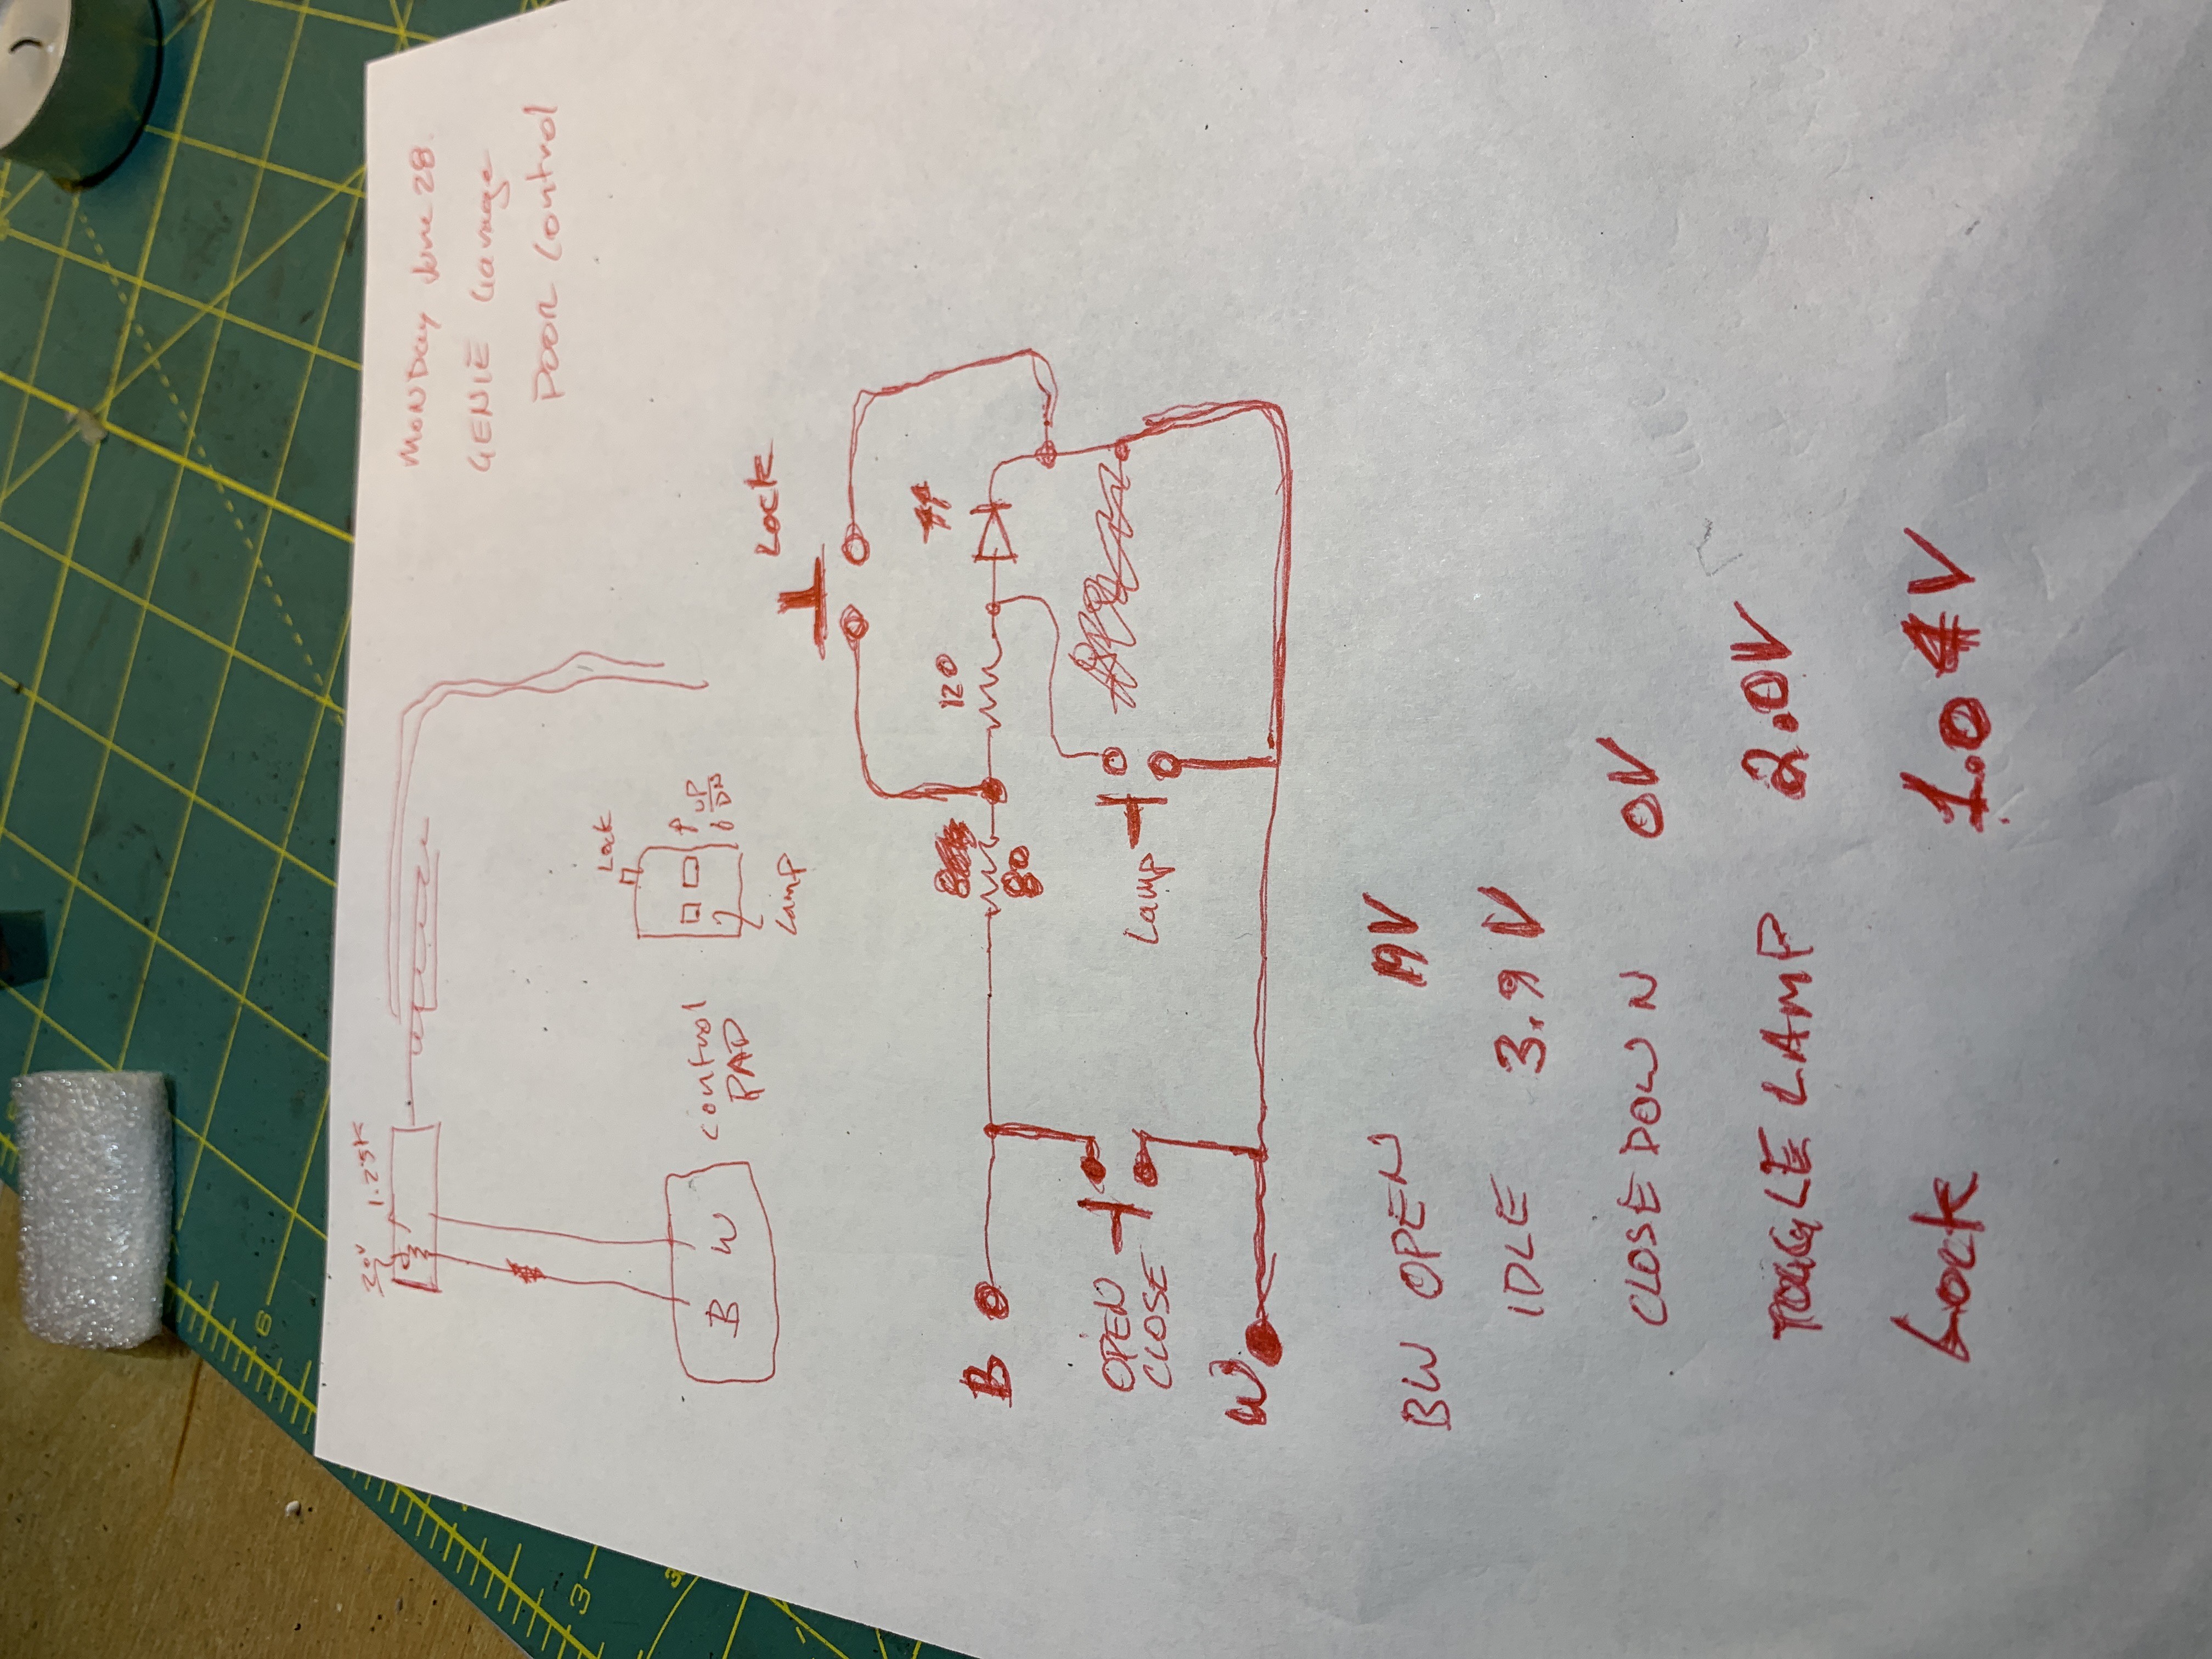 20V 1.25K
MONDay June 28.
GENIE Garage
DOOR Control
Lock
B W
Control
PAD
UP
DN
Lamp
Lock
120
B
80
OPEN
CLOSE
Lamp
W
BW OPEN 19V
IDLE 3.9V
CLOSE DOWN 0V
TOGGLE LAMP 2.0V
Lock 1.04V
6
3